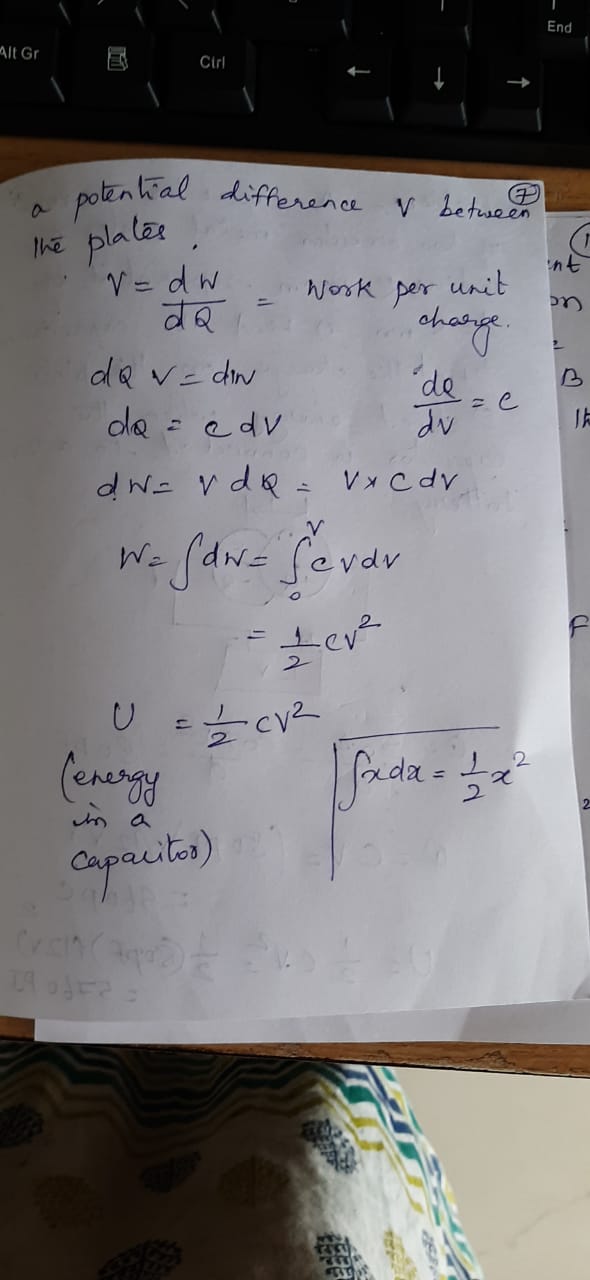 Alt Gr
Ctrl
End
←
↓
→
7
a potential difference V between
the plates.
V = dW/dQ = Work per unit
charge.
dQ V = dW
dQ/dV = C
dQ = C dV
dW = V dQ = V x C dV
W = ∫dW = ∫₀ⱽ C V dV
= 1/2 CV²
U = 1/2 CV²
(energy
in a
capacitor)
∫x dx = 1/2 x²
1
nt
on
B
2